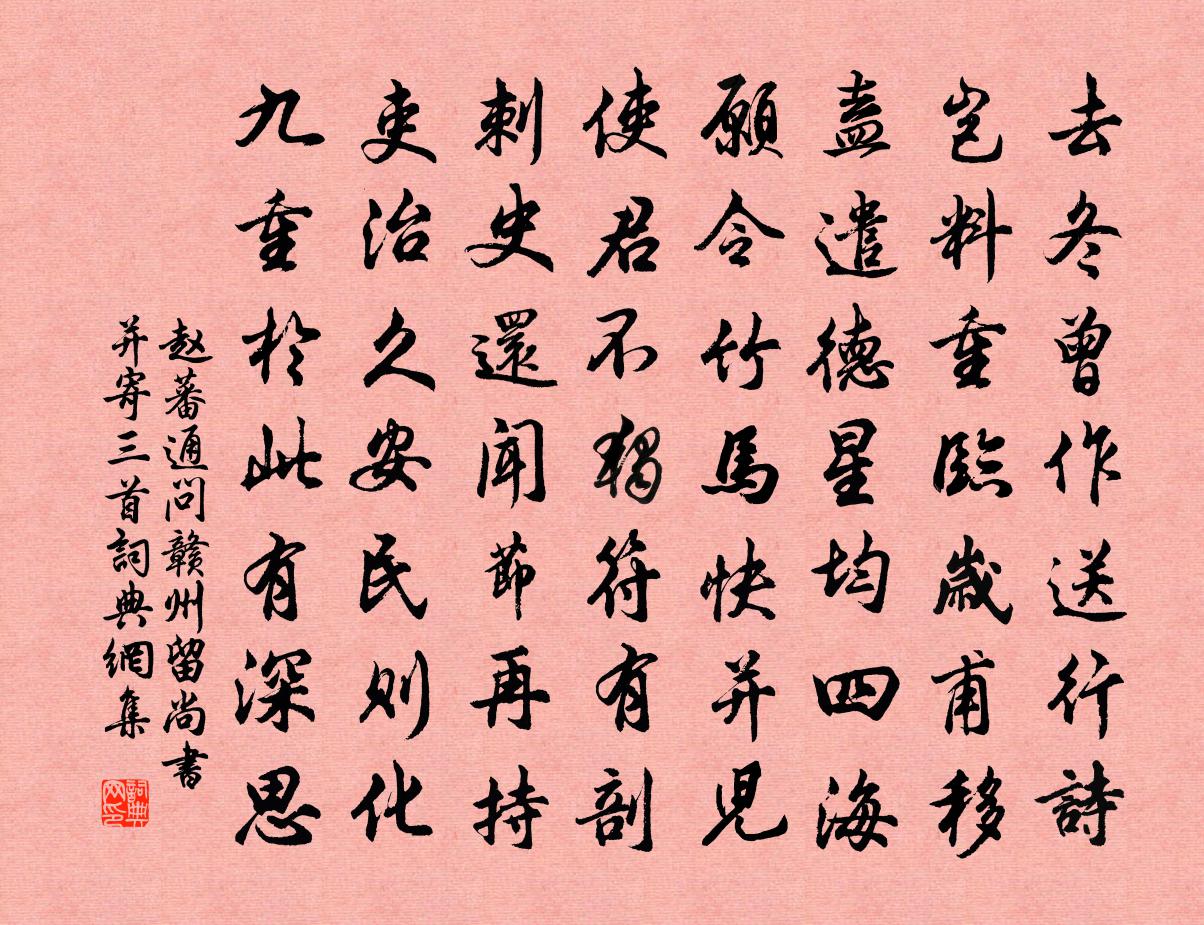 去冬曾作送行詩
豈料重臨歲甫移
盍遣德星均四海
願令竹馬快并児
使君不獨符有剖
刺史還聞節再持
吏治久安民則化
九重於此有深思
赵蕃通问赣州留尚書
并寄三首詞典網集
詞典网印